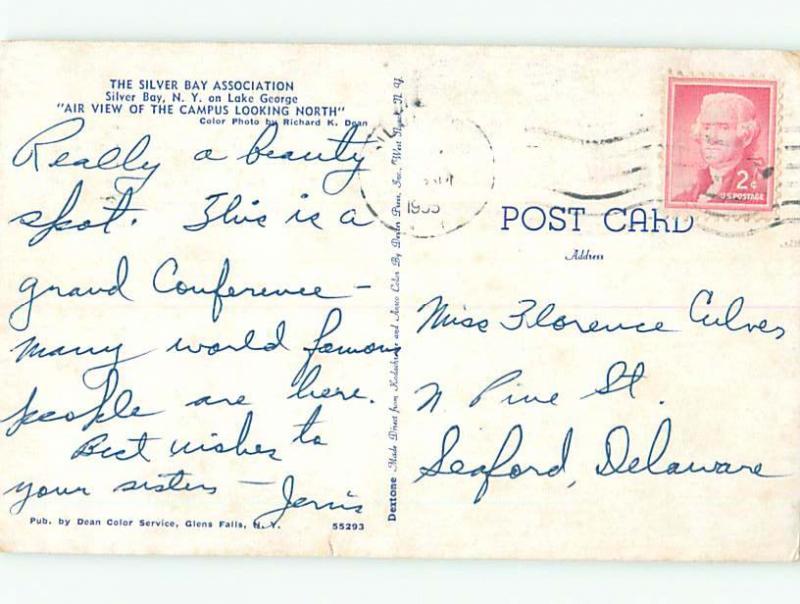 THE SILVER BAY ASSOCIATION
Silver Bay, N. Y. on Lake George
"AIR VIEW OF THE CAMPUS LOOKING NORTH"
Color Photo by Richard K. Dean
Really a beauty
spot. This is a
grand Conference -
many world famous
people are here.
Best wishes to
your sisters - Jervis
Pub. by Dean Color Service, Glens Falls, N. Y. 55293
Dextone Made Direct from Kodachrome and Ansco Color By Dexter Press, Inc. West Nyack, N. Y.
1955
2¢
U.S. POSTAGE
POST CARD
Address
Miss Florence Culver
N Pine St.
Seaford, Delaware